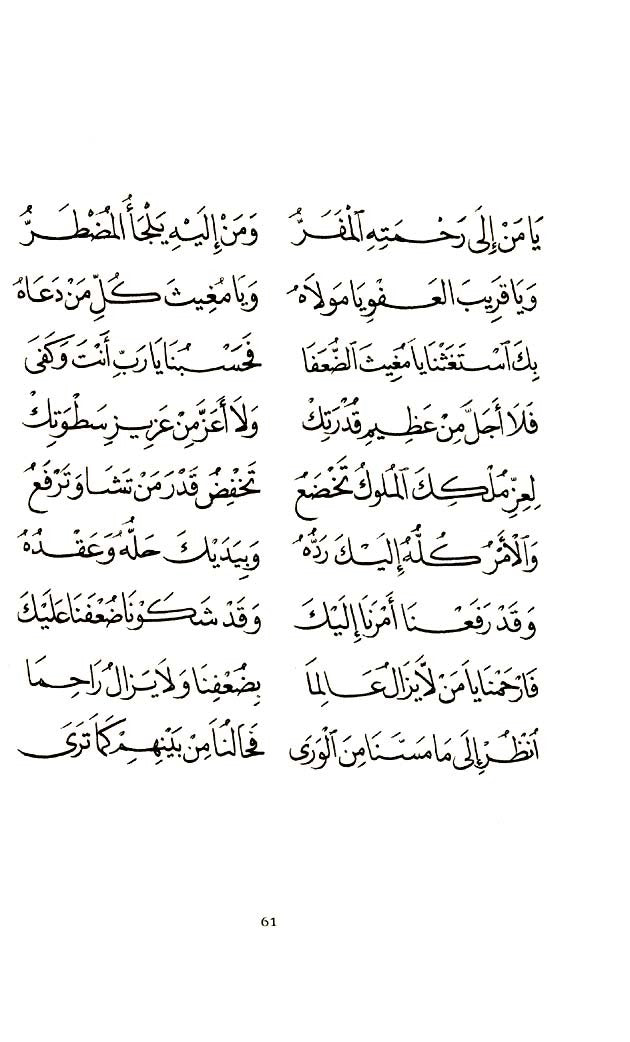 يَا مَنْ إِلَى رَحْمَتِهِ ٱلْمَفَرُّ وَمَنْ إِلَيْهِ يَلْجَأُ الْمُضْطَرُّ
وَيَا قَرِيبَ الْعَفْوِ يَا مَوْلَاهُ وَيَا مُغِيثَ كُلِّ مَنْ دَعَاهُ
بِكَ ٱسْتَغَثْنَا يَا مُغِيثَ الضُّعَفَا فَحَسْبُنَا يَا رَبِّ أَنْتَ وَكَفَى
فَلَا أَجَلَّ مِنْ عَظِيمِ قُدْرَتِكْ وَلَا أَعَزَّ مِنْ عَزِيزِ سَطْوَتِكْ
لِعِزِّ مُلْكِكَ الْمُلُوكُ تَخْضَعُ تَخْفِضُ قَدْرَ مَنْ تَشَا وَتَرْفَعُ
وَالْأَمْرُ كُلُّهُ إِلَيْكَ رَدُّهُ وَبِيَدَيْكَ حَلُّهُ وَعَقْدُهُ
وَقَدْ رَفَعْنَا أَمْرَنَا إِلَيْكَ وَقَدْ شَكَوْنَا ضُعْفَنَا عَلَيْكَ
فَارْحَمْنَا يَا مَنْ لَا يَزَالُ عَالِمَا بِضُعْفِنَا وَلَا يَزَالُ رَاحِمَا
اُنْظُرْ إِلَى مَا مَسَّنَا مِنَ ٱلْوَرَى فَحَالُنَا مِنْ بَيْنِهِمْ كَمَا تَرَى
61